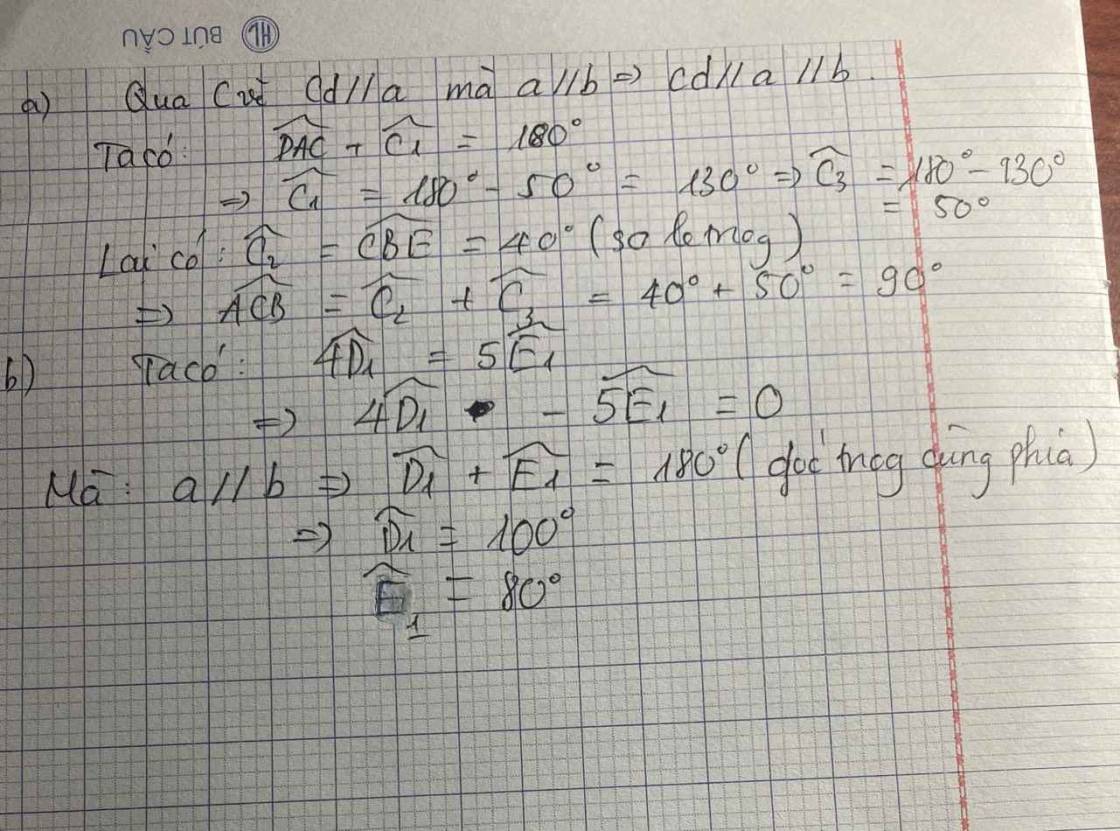 HL BÚT CẦU
a) Qua C vẽ Cd//a mà a//b => cd//a//b.
Ta có: \widehat{DAC} + \widehat{C_1} = 180°
=> \widehat{C_1} = 180° - 50° = 130° => \widehat{C_3} = 180° - 130°
= 50°
Lại có: \widehat{C_2} = \widehat{CBE} = 40° (so le trog)
=> \widehat{ACB} = \widehat{C_2} + \widehat{C_3} = 40° + 50° = 90°
b) Ta có: 4\widehat{D_1} = 5\widehat{E_1}
=> 4\widehat{D_1} - 5\widehat{E_1} = 0
Mà: a//b => \widehat{D_1} + \widehat{E_1} = 180° (góc trog cùng phía)
=> \widehat{D_1} = 100°
\widehat{E_1} = 80°